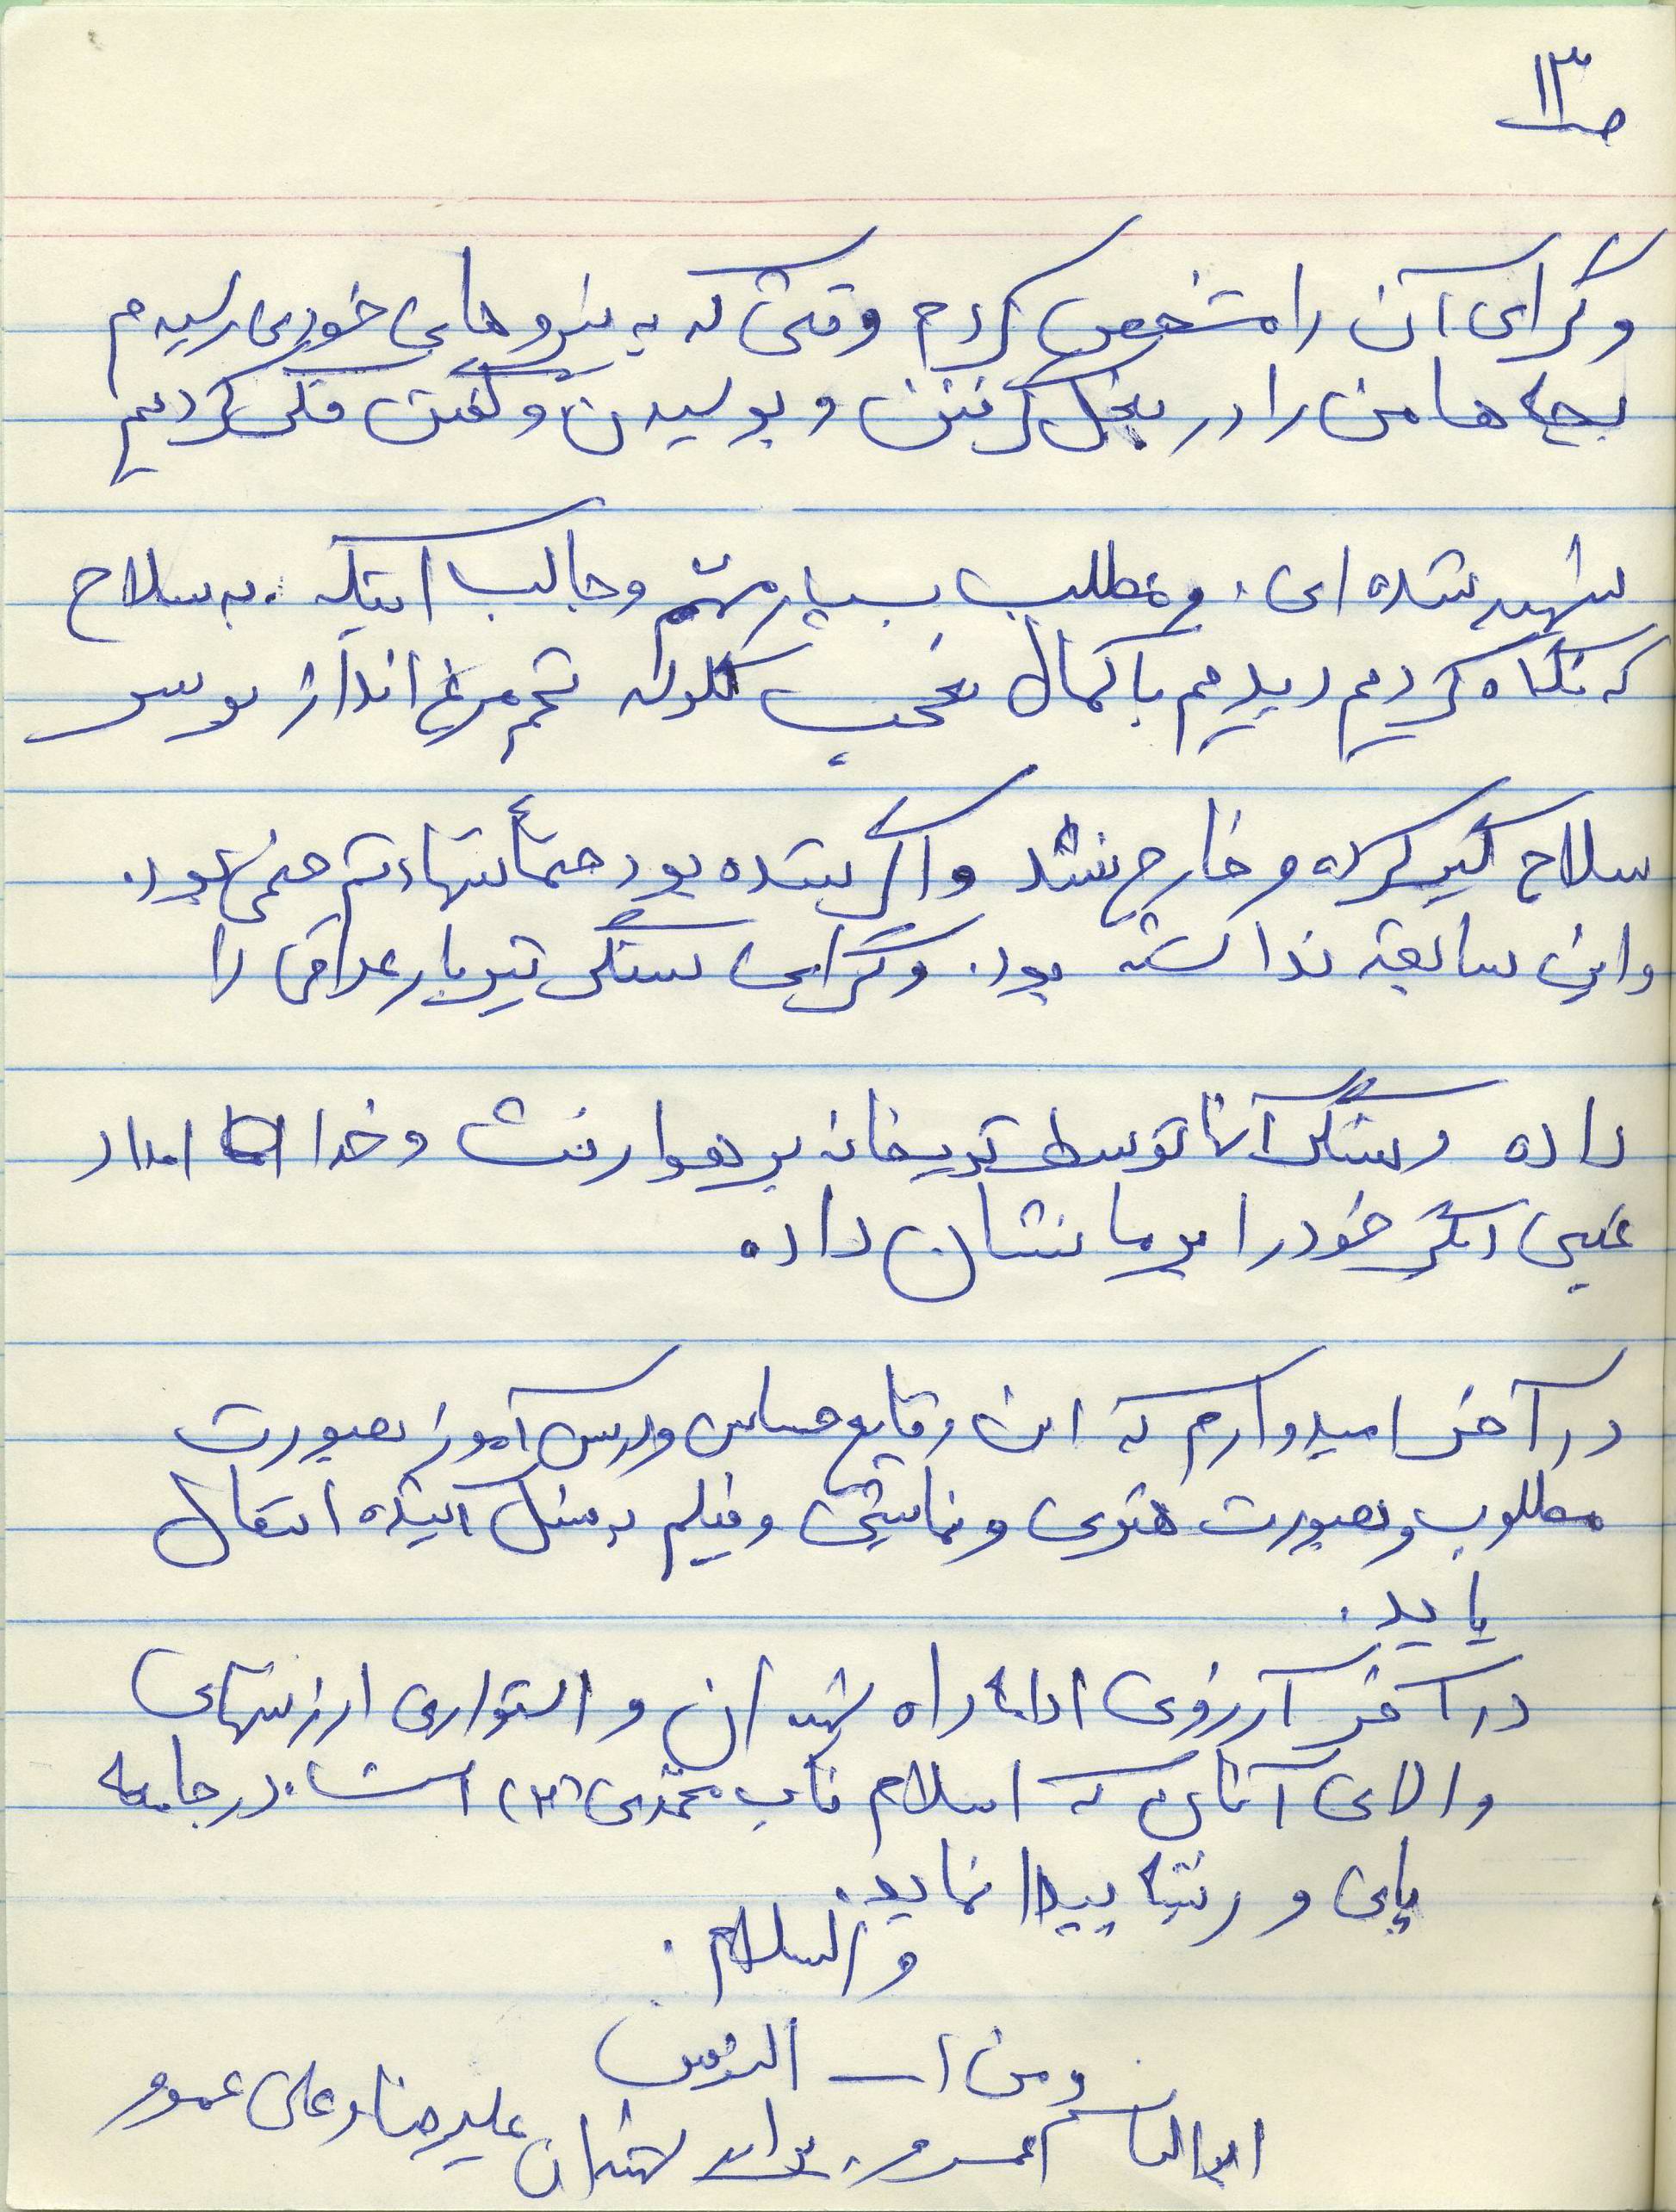 ص ۱۳
و گرای آن را مشخص کردم وقتی که به نیروهای خودی رسیدم
بچه ها من را در بغل گرفتن و بوسیدن و گفتن فکر کردیم
شهید شده ای. و مطلب بسیار مهّم و جالب اینکه. به سلاح
که نگاه کردم دیدم با کمال تعجب گلوله تخم مرغ انداز
سلاح گیر کرده و خارج نشد و اگر شده بود حتمأ شهادتم حتمی بود.
و این سابقه نداشته بود. و گرای سنگر تیربار عراقی را
داده و سنگر آنها توسط توپخانه بر هوا رفت و خدا امداد
غیبی دیگر خود را بر ما نشان داد.
در آخر امیدوارم که این وقایع حساس و درس آموز بصورت
مطلوب و بصورت هنری و نمایشی و فیلم به نسل آینده انتقال
یابد.
در آخر آرزوی ادامه راه شهیدان و استواری ارزشهای
والای آنان که اسلام ناب محمّدی (ص) است. در جامعه
پای و رتبه پیدا نماید.
والسلام.
و من ا... التوفیق
ابوالقاسم عمو برادر شهیدان علیرضا و علی عمو